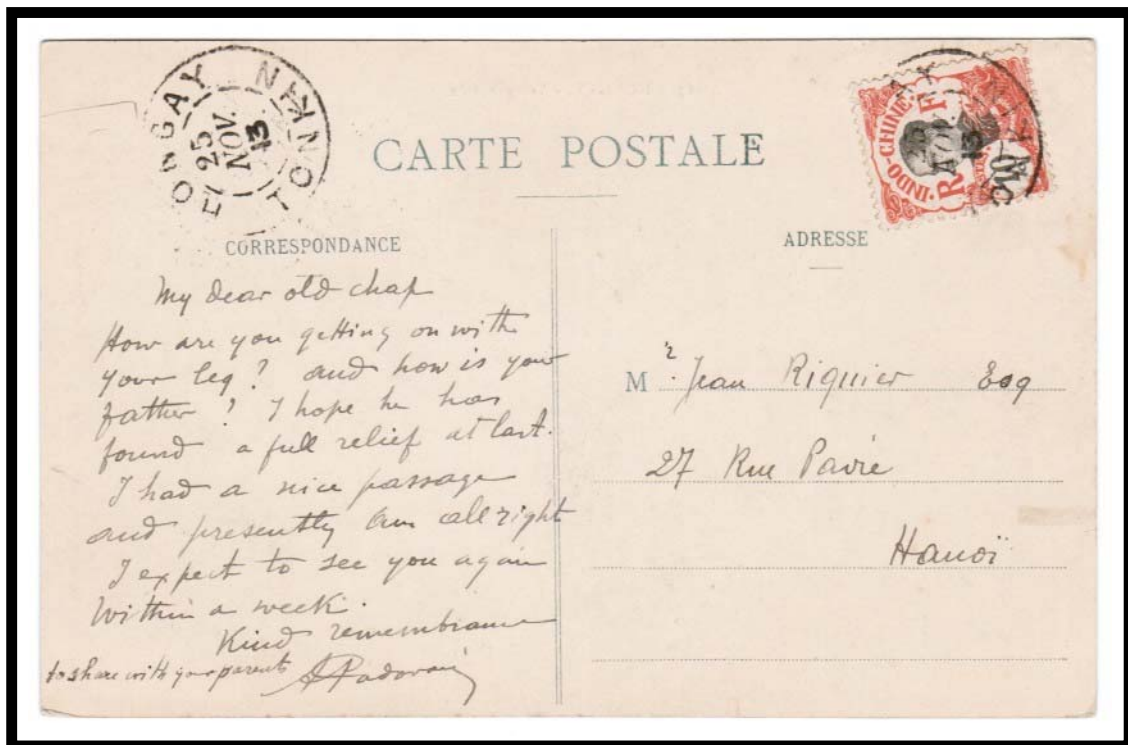 HONGAY TONKIN
25
NOV.
13
CARTE POSTALE
INDO-CHINE
R F
CORRESPONDANCE
ADRESSE
My dear old chap
How are you getting on with
your leg? and how is your
father? I hope he has
found a full relief at last.
I had a nice passage
and presently am all right
I expect to see you again
within a week.
Kind remembrance
to share with your parents
M r. Jean Riquier Esq
27 Rue Pavie
Hanoï